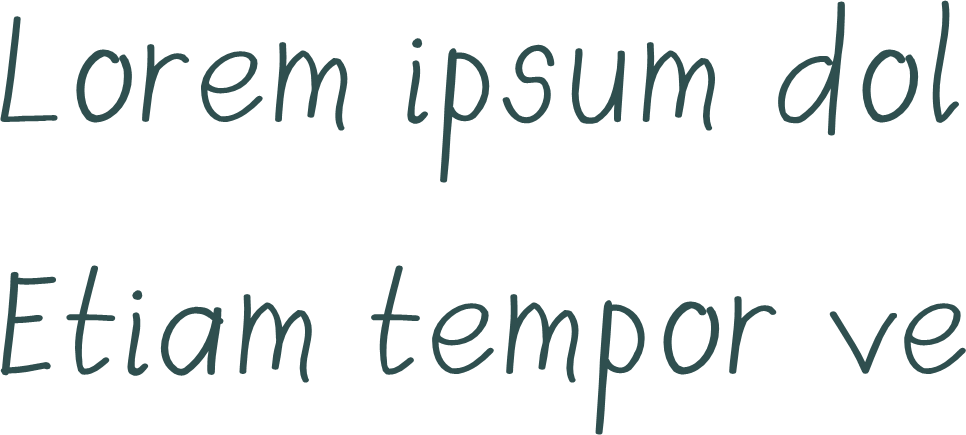 Lorem ipsum dol
Etiam tempor ve